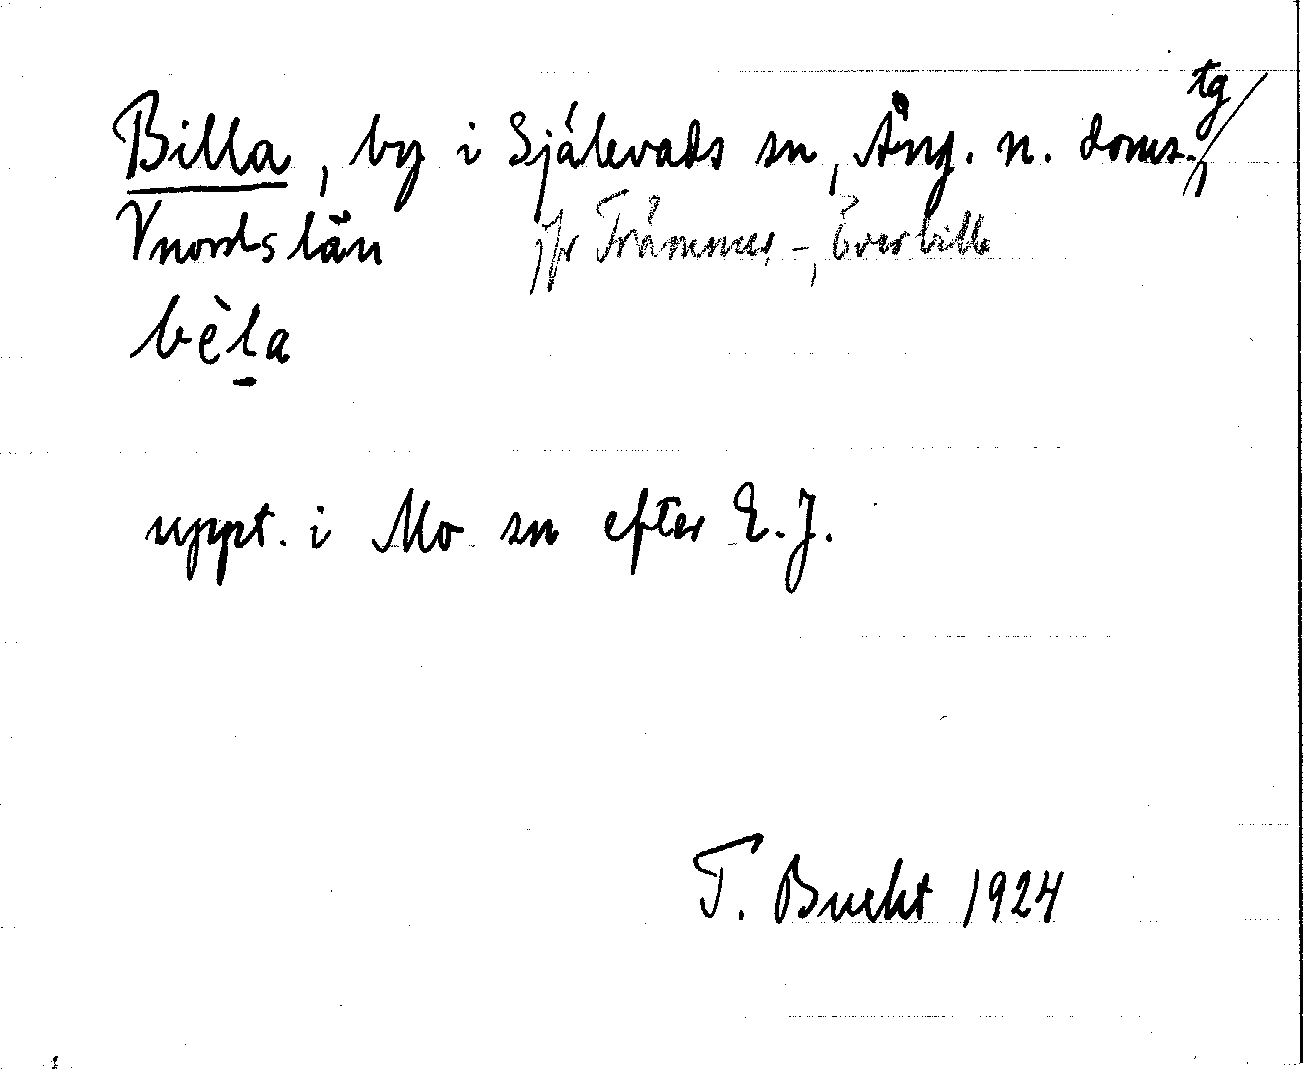 Billa, by i Själevads sn, Ång. n. doms.tg
Vnords län jfr Främmer-, Överbilla
bèl̠a
uppt. i Mo sn efter E. J.
T. Bucht 1924